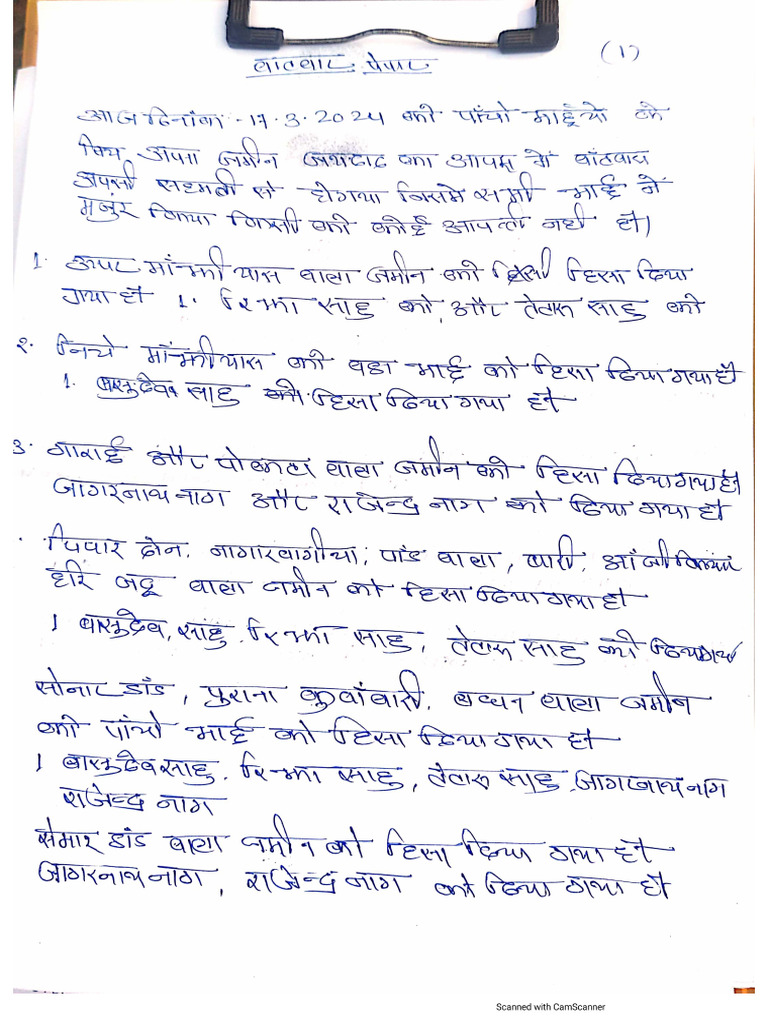 (1)
बांटवारा पेपर
आज दिनांक - 17.3.2024 को पाँचो भाईयो के
बिच अपना जमीन जयदाद का आपस में बांटवारा
आपसी सहमती से होगया जिसमे सभी भाई ने
मंजुर किया किसी को कोई आपती नही है।
1. ऊपर मांझीयास वाला जमीन को हिसा दिया
गया है 1. रिझा साहु को, और तेलारु साहु को
२. निचे मांझीयास को बडा भाई को हिसा दिया गया है
1. बासुदेव साहु को हिसा दिया गया है
3. गाराई और पोखटा वाला जमीन को हिसा दिया गया है।
जागरनाथ नाग और राजेन्द्र नाग को दिया गया है
पिपार दोन, नागारबागीचा, पांड वाला, बारी,
हरि जदू वाला जमीन को हिसा दिया गया है
1 बासुदेव, साहु, रिझा साहु, तेलारु साहु को दिया गया
सोनार डांड, पुराना कुवांबारी, वाला जमीन
को पांचो भाई को हिसा दिया गया है
1 बासुदेव साहु, रिझा साहु, तेलारु साहु, जागरनाथ नाग
राजेन्द्र नाग
सेमार डांड वाला जमीन को हिसा दिया गया है
जागरनाथ नाग, राजेन्द्र नाग को दिया गया है
Scanned with CamScanner